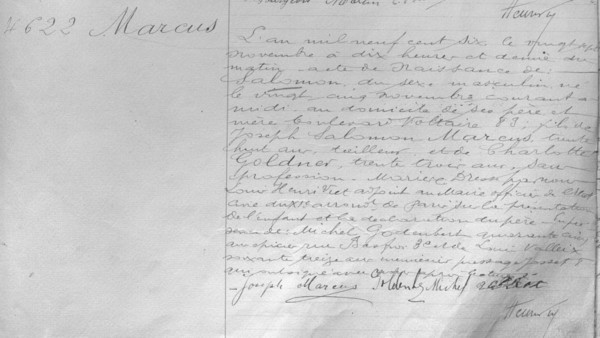 4622 Marcus
L'an mil neuf cent six, le vingt sept
novembre à dix heures et demie du
matin acte de naissance de:
Salomon, du sexe masculin, né
le vingt cinq novembre courant à
midi au domicile de ses père et
mère boulevard Voltaire 83, fils de
Joseph Salomon Marcus, trente
huit ans, tailleur et de Charlotte
Goldner, trente trois ans, sans
profession - Mariés. Dressé par nous
Louis Henri adjoint au Maire officier de l'Etat
du XIe arrondt de Paris sur la présentation
de l'Enfant et la déclaration du père en pré
sence de: Michel quarante
rue et de Louis
soixante treize ans menuisier passage
qui
Joseph Marcus Michel